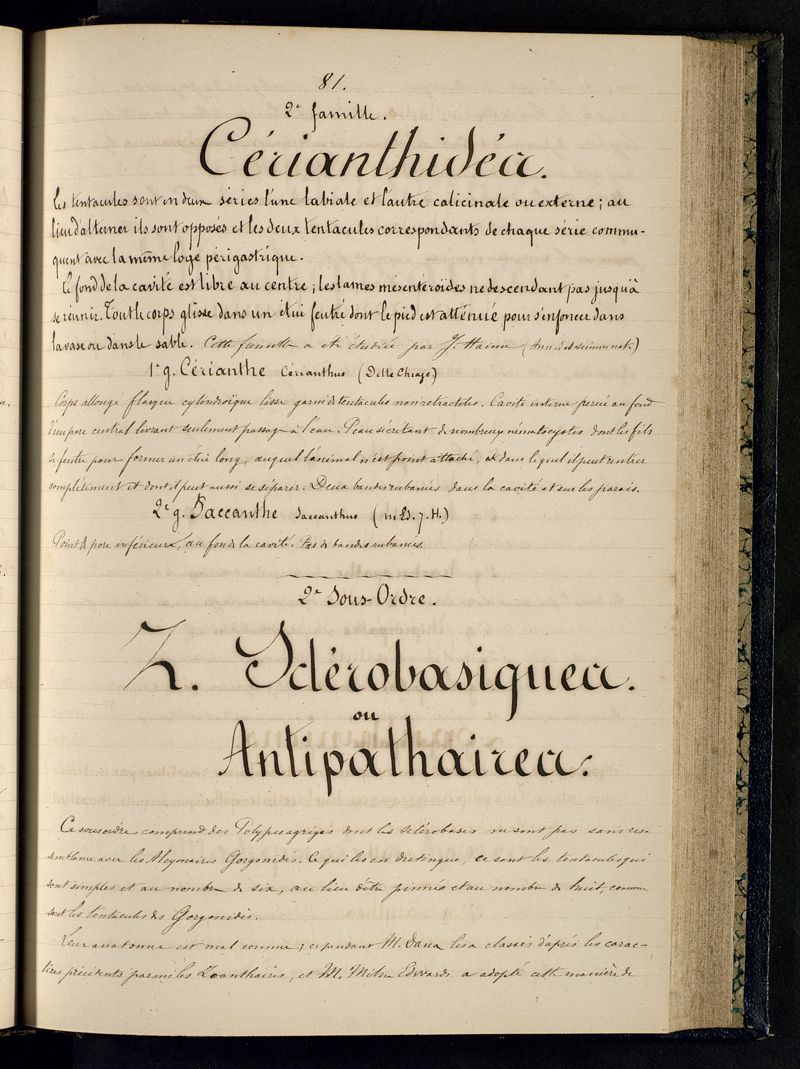 81.
2e famille.
Cérianthidés.
Les tentacules sont en deux séries l'une labiale et l'autre calicinale ou externe; au
lieu d'alterner ils sont opposés et les deux tentacules correspondants de chaque série commu-
quent avec la même loge périgastrique.
Le fond de la cavité est libre au centre; les lames mésentéroïdes ne descendant pas jusqu'à
se reunir. Tout le corps glisse dans un étui feutré dont le pied est atténué pour s'enfoncer dans
la vase ou dans le sable. Cette famille a été étudiée par J. Haime (Ann. des sciences nat.)
1er g. Cérianthe Cerianthus (Delle Chiaje)
Corps allongé flasque cylindroïque lisse garni de tentacules non rétractiles. Cavité interne percée au fond
d'un pore central livrant seulement passage à l'eau. Peau sécrétant de nombreux nématocystes dont les fils
se feutre pour former un étui long, auquel l'animal n'est point attaché, et dans lequel il peut rentrer
complètement et dont il peut aussi se séparer. Deux bandes rubanées dans la cavité et sur les parois.
2e g. Saccanthe Saccanthus (m Ed. J. H.)
Point de pore inférieur, au fond de la cavité. Pas de bandes rubanées.
2e Sous-Ordre.
Z. Sclérobasiques.
ou
Antipathaires.
Ce sous ordre comprend des Polypes agrégés dont les sclérobases ne sont pas sans res-
semblance avec les Alcyonaires Gorgonidés. Ce qui les en distingue, ce sont les tentacules qui
sont simples et au nombre de six, au lieu d'être pinnés et au nombre de huit, comme
sont les tentacules des Gorgonidés.
Leur anatomie est mal connue; cependant M. Dana les a classés d'après les carac-
tères précédents parmi les Zoanthaires, et M. Milne Edwards a adopté cette manière de